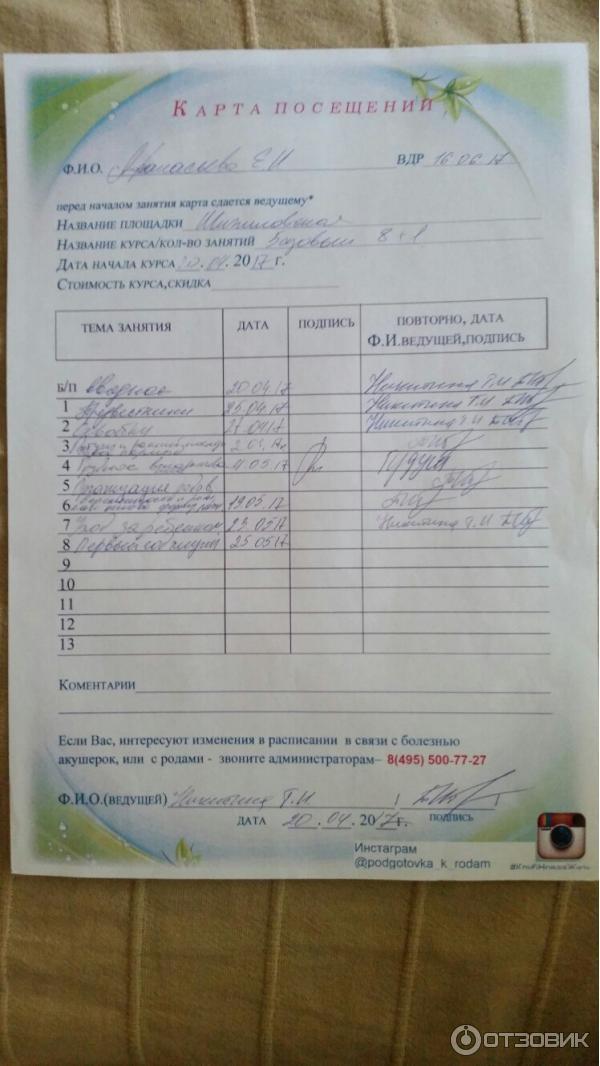 КАРТА ПОСЕЩЕНИЙ
Ф.И.О. Афанасьева Е И ВДР 16.06.17
перед началом занятия карта сдается ведущему*
НАЗВАНИЕ ПЛОЩАДКИ Шипиловская
НАЗВАНИЕ КУРСА/КОЛ-ВО ЗАНЯТИЙ Базовый 8+1
ДАТА НАЧАЛА КУРСА 20.04.2017г.
СТОИМОСТЬ КУРСА,СКИДКА
ТЕМА ЗАНЯТИЯ ДАТА ПОДПИСЬ ПОВТОРНО, ДАТА
Ф.И.ВЕДУЩЕЙ,ПОДПИСЬ
Б/П вводное 20.04.17 Никитина Г.И
1 Предвестники 25.04.17 Никитина Г.И
2 Схватки 27.04.17 Никитина Г.И
3
4 Грудное 4.05.17
5 родов
6 19.05.17
7 Уход за ребенком 23.05.17 Никитина Г.И
8 Первый год жизни 25.05.17
9
10
11
12
13
КОМЕНТАРИИ
Если Вас, интересуют изменения в расписании в связи с болезнью
акушерок, или с родами - звоните администраторам– 8(495) 500-77-27
Ф.И.О.(ВЕДУЩЕЙ) Никитина Г.И.
ДАТА 20.04.2017г. ПОДПИСЬ
Инстаграм
@podgotovka_k_rodam
ОТЗОВИК